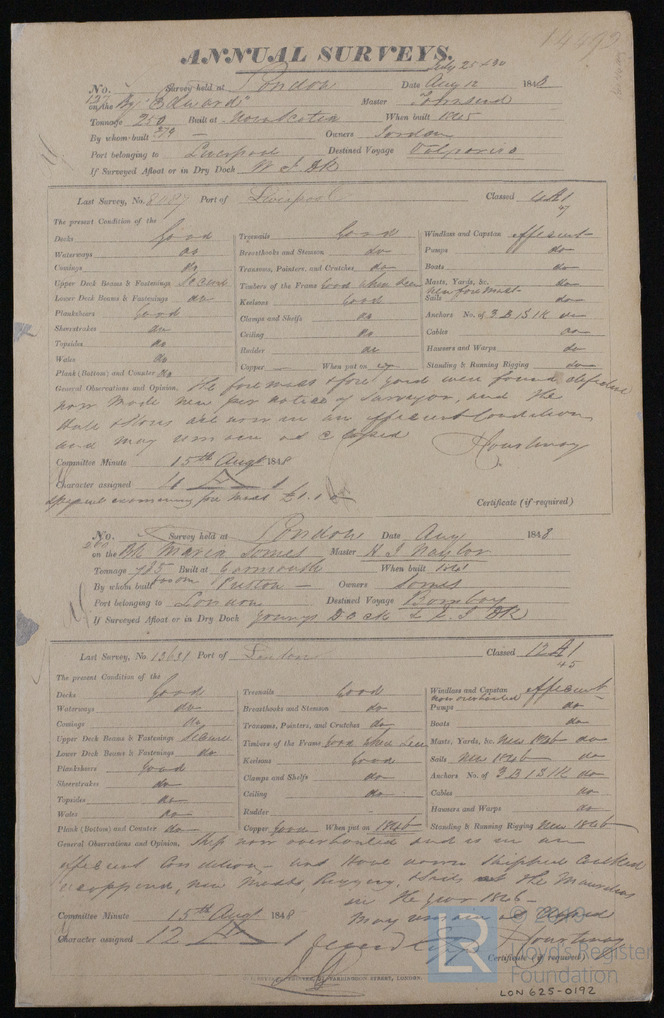 14493
ANNUAL SURVEYS.
July 25 & 30
No. Survey held at London Date Aug 12 1848
on the Bg "Edward" Master Townsend
Tonnage 250 Built at Nova Scotia When built 1845
By whom built 279 — Owners Jordan
Port belonging to Liverpool Destined Voyage Valparaiso
If Surveyed Afloat or in Dry Dock W I Dk
Last Survey, No. Port of Liverpool Classed 4 A 1
47
The present Condition of the
Decks Good
Waterways do
Comings do
Upper Deck Beams & Fastenings Secure
Lower Deck Beams & Fastenings do
Planksheers Good
Sheerstrakes do
Topsides do
Wales do
Plank (Bottom) and Counter do
Treenails Good
Breasthooks and Stemson do
Transoms, Pointers, and Crutches do
Timbers of the Frame Good when seen
Keelsons Good
Clamps and Shelfs do
Ceiling do
Rudder do
Copper — When put on
Windlass and Capstan efficient
Pumps do
Boats do
Masts, Yards, &c. do
new foremast
Sails do
Anchors No. of 3 B 1 S 1 K do
Cables do
Hawsers and Warps do
Standing & Running Rigging do
General Observations and Opinion, The foremast & fore yard were found defective
now made new per notice of Surveyor, and the
Hull & Stores are now in an efficient Condition
and may remain as Classed
Committee Minute 15th Augt 1848
Character assigned 4 A 1
Special examining fee Mast £1.1
Certificate (if required)
No. Survey held at London Date Aug 1848
on the Bk Maria Somes Master H I Naylor
Tonnage 785 Built at Yarmouth When built 1841
By whom built Preston — Owners Somes
Port belonging to London Destined Voyage Bombay
If Surveyed Afloat or in Dry Dock Youngs Dock & E I Dk
Last Survey, No. 13631 Port of London Classed 12 A 1
45
The present Condition of the
Decks Good
Waterways do
Comings do
Upper Deck Beams & Fastenings Secure
Lower Deck Beams & Fastenings do
Planksheers Good
Sheerstrakes do
Topsides do
Wales do
Plank (Bottom) and Counter do
Treenails Good
Breasthooks and Stemson do
Transoms, Pointers, and Crutches do
Timbers of the Frame Good when seen
Keelsons Good
Clamps and Shelfs do
Ceiling do
Rudder
Copper Good When put on 1846
Windlass and Capstan efficient
now overhauled
Pumps do
Boats do
Masts, Yards, &c. New 1846 do
Sails New 1846 do
Anchors No. of 3 B 1 S 1 K do
Cables do
Hawsers and Warps do
Standing & Running Rigging New 1846
General Observations and Opinion, Ship now overhauled and is in an
efficient Condition, and stripped Caulked
recoppered, new Masts, Rigging, & Sails at the Mauritius
in the year 1846
may remain as Classed
Committee Minute 15th Augt 1848
Character assigned 12 A 1
Certificate (if required)
LR
© 2019
Lloyd's Register
Foundation
LON 625-0192